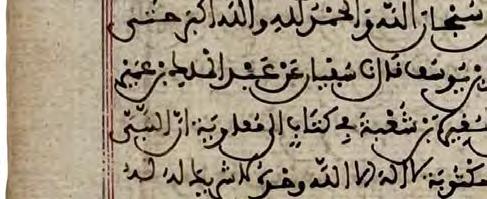 سبحان الله والحمد لله والله اكبر حتى
بن يوسف قال نا سفيان عن عبد الملك بن عمير
المغيرة بن شعبة في كتاب الى معاوية ان النبي
مكتوبة لا اله الا الله وحده لا شريك له له